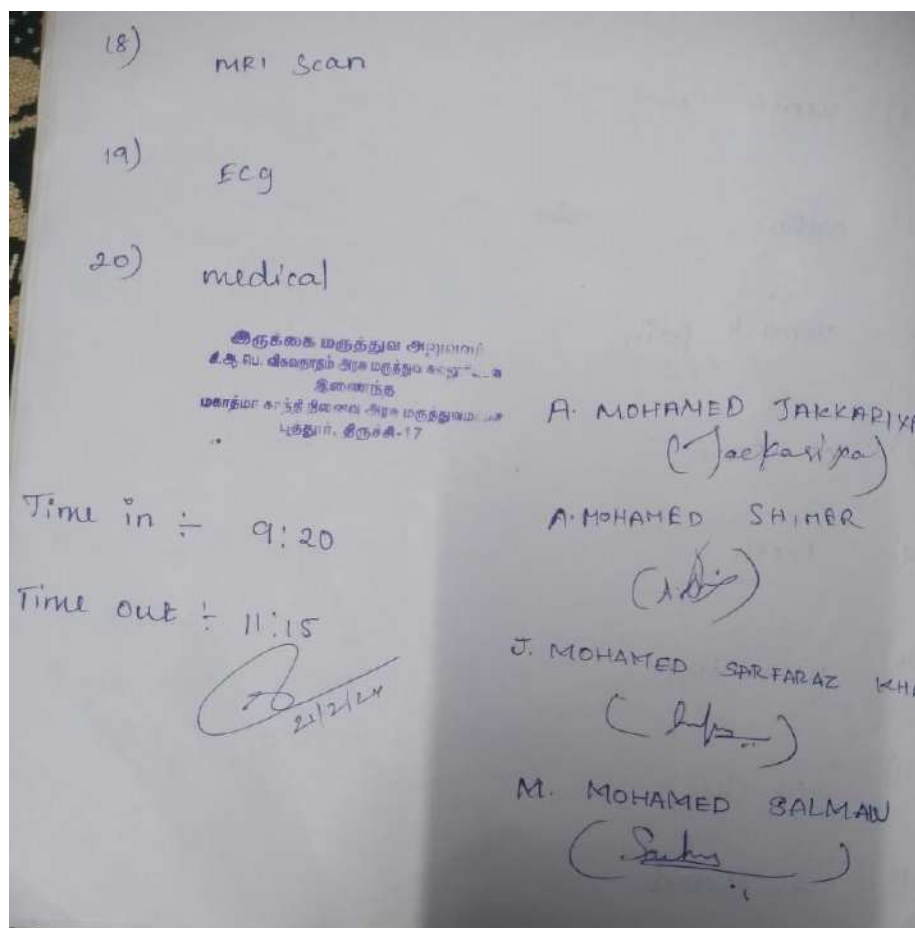 18)
MRI Scan
19)
ECg
20)
medical
இருக்கை மருத்துவ அலுவலர்
கி.ஆ.பெ. விசுவநாதம் அரசு மருத்துவ
இணைந்த
மகாத்மா காந்தி நினைவு அரசு மருத்துவமனை
புத்தூர், திருச்சி-17
Time in ÷ 9:20
Time out ÷ 11:15
21/2/24
A. MOHAMED JAKKARIYA
(Jackariya)
A. MOHAMED SHIMER
J. MOHAMED SARFARAZ KHA
M. MOHAMED SALMAN